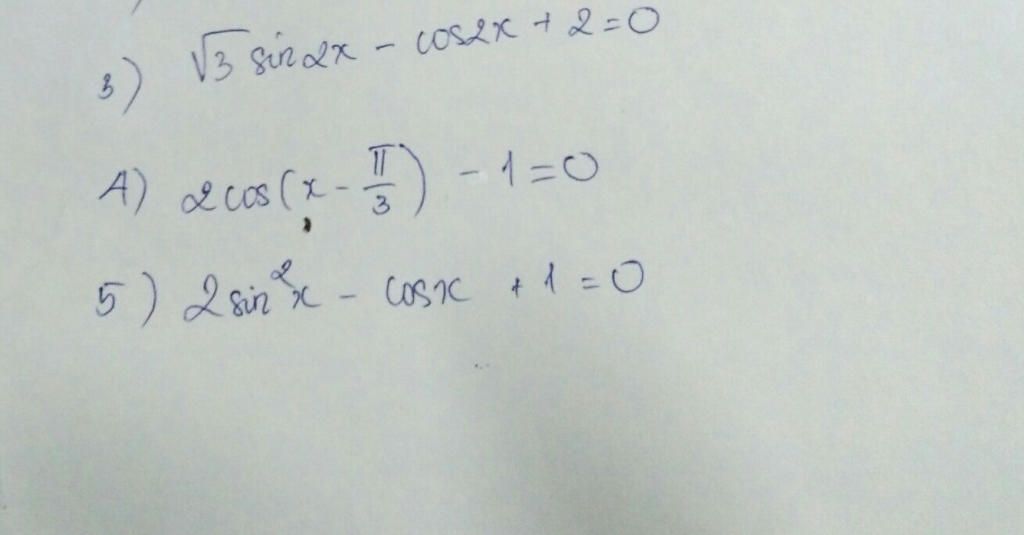 3) √3 sin2x - cos2x + 2 = 0
4) 2cos(x - π/3) - 1 = 0
5) 2sin²x - cosx + 1 = 0